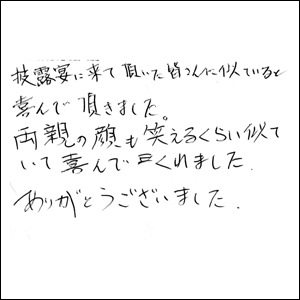 披露宴に来て頂いた皆さんに似ていると
喜んで頂きました。
両親の顔も笑えるくらい似て
いて喜んでくれました.
ありがとうございました.